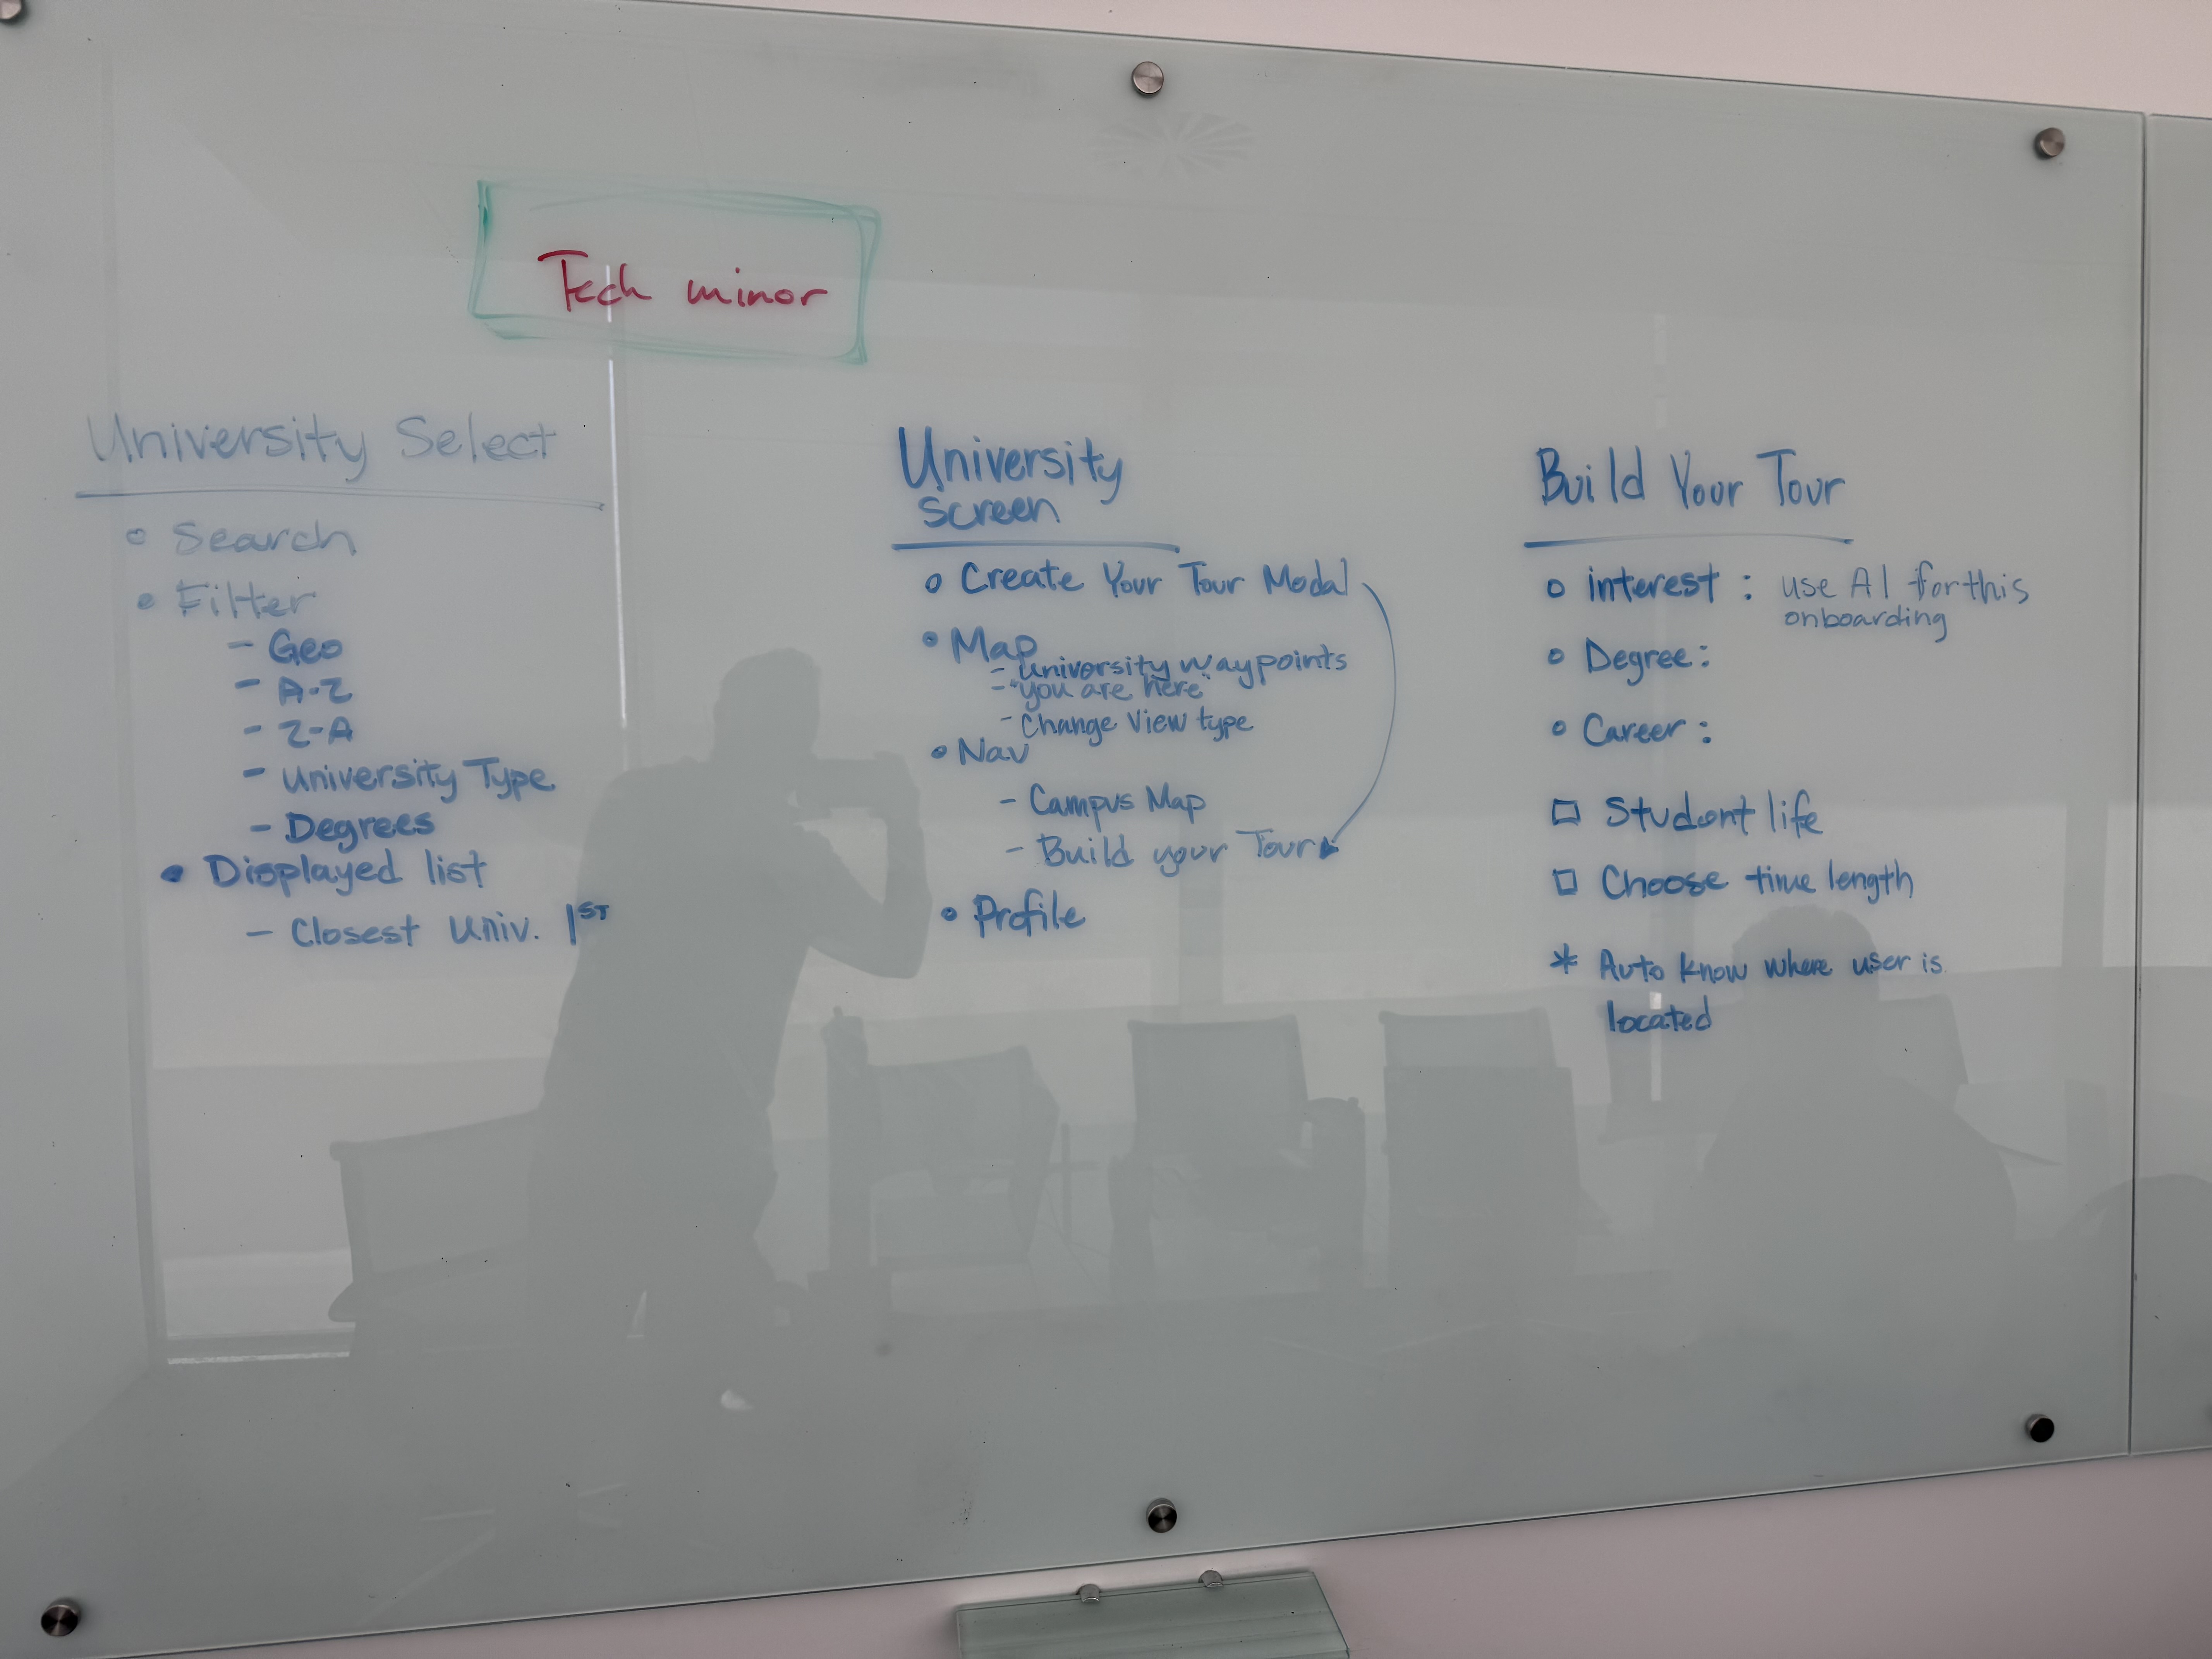 Tech minor
University Select
• Search
• Filter
- Geo
- A-Z
- Z-A
- University Type
- Degrees
• Displayed list
- Closest Univ. 1ST
University
Screen
• Create Your Tour Modal
• Map
- University waypoints
- "you are here"
- Change View type
• Nav
- Campus Map
- Build your Tour
• Profile
Build Your Tour
• interest : use AI for this
onboarding
• Degree :
• Career :
□ Student life
□ Choose time length
* Auto know where user is
located